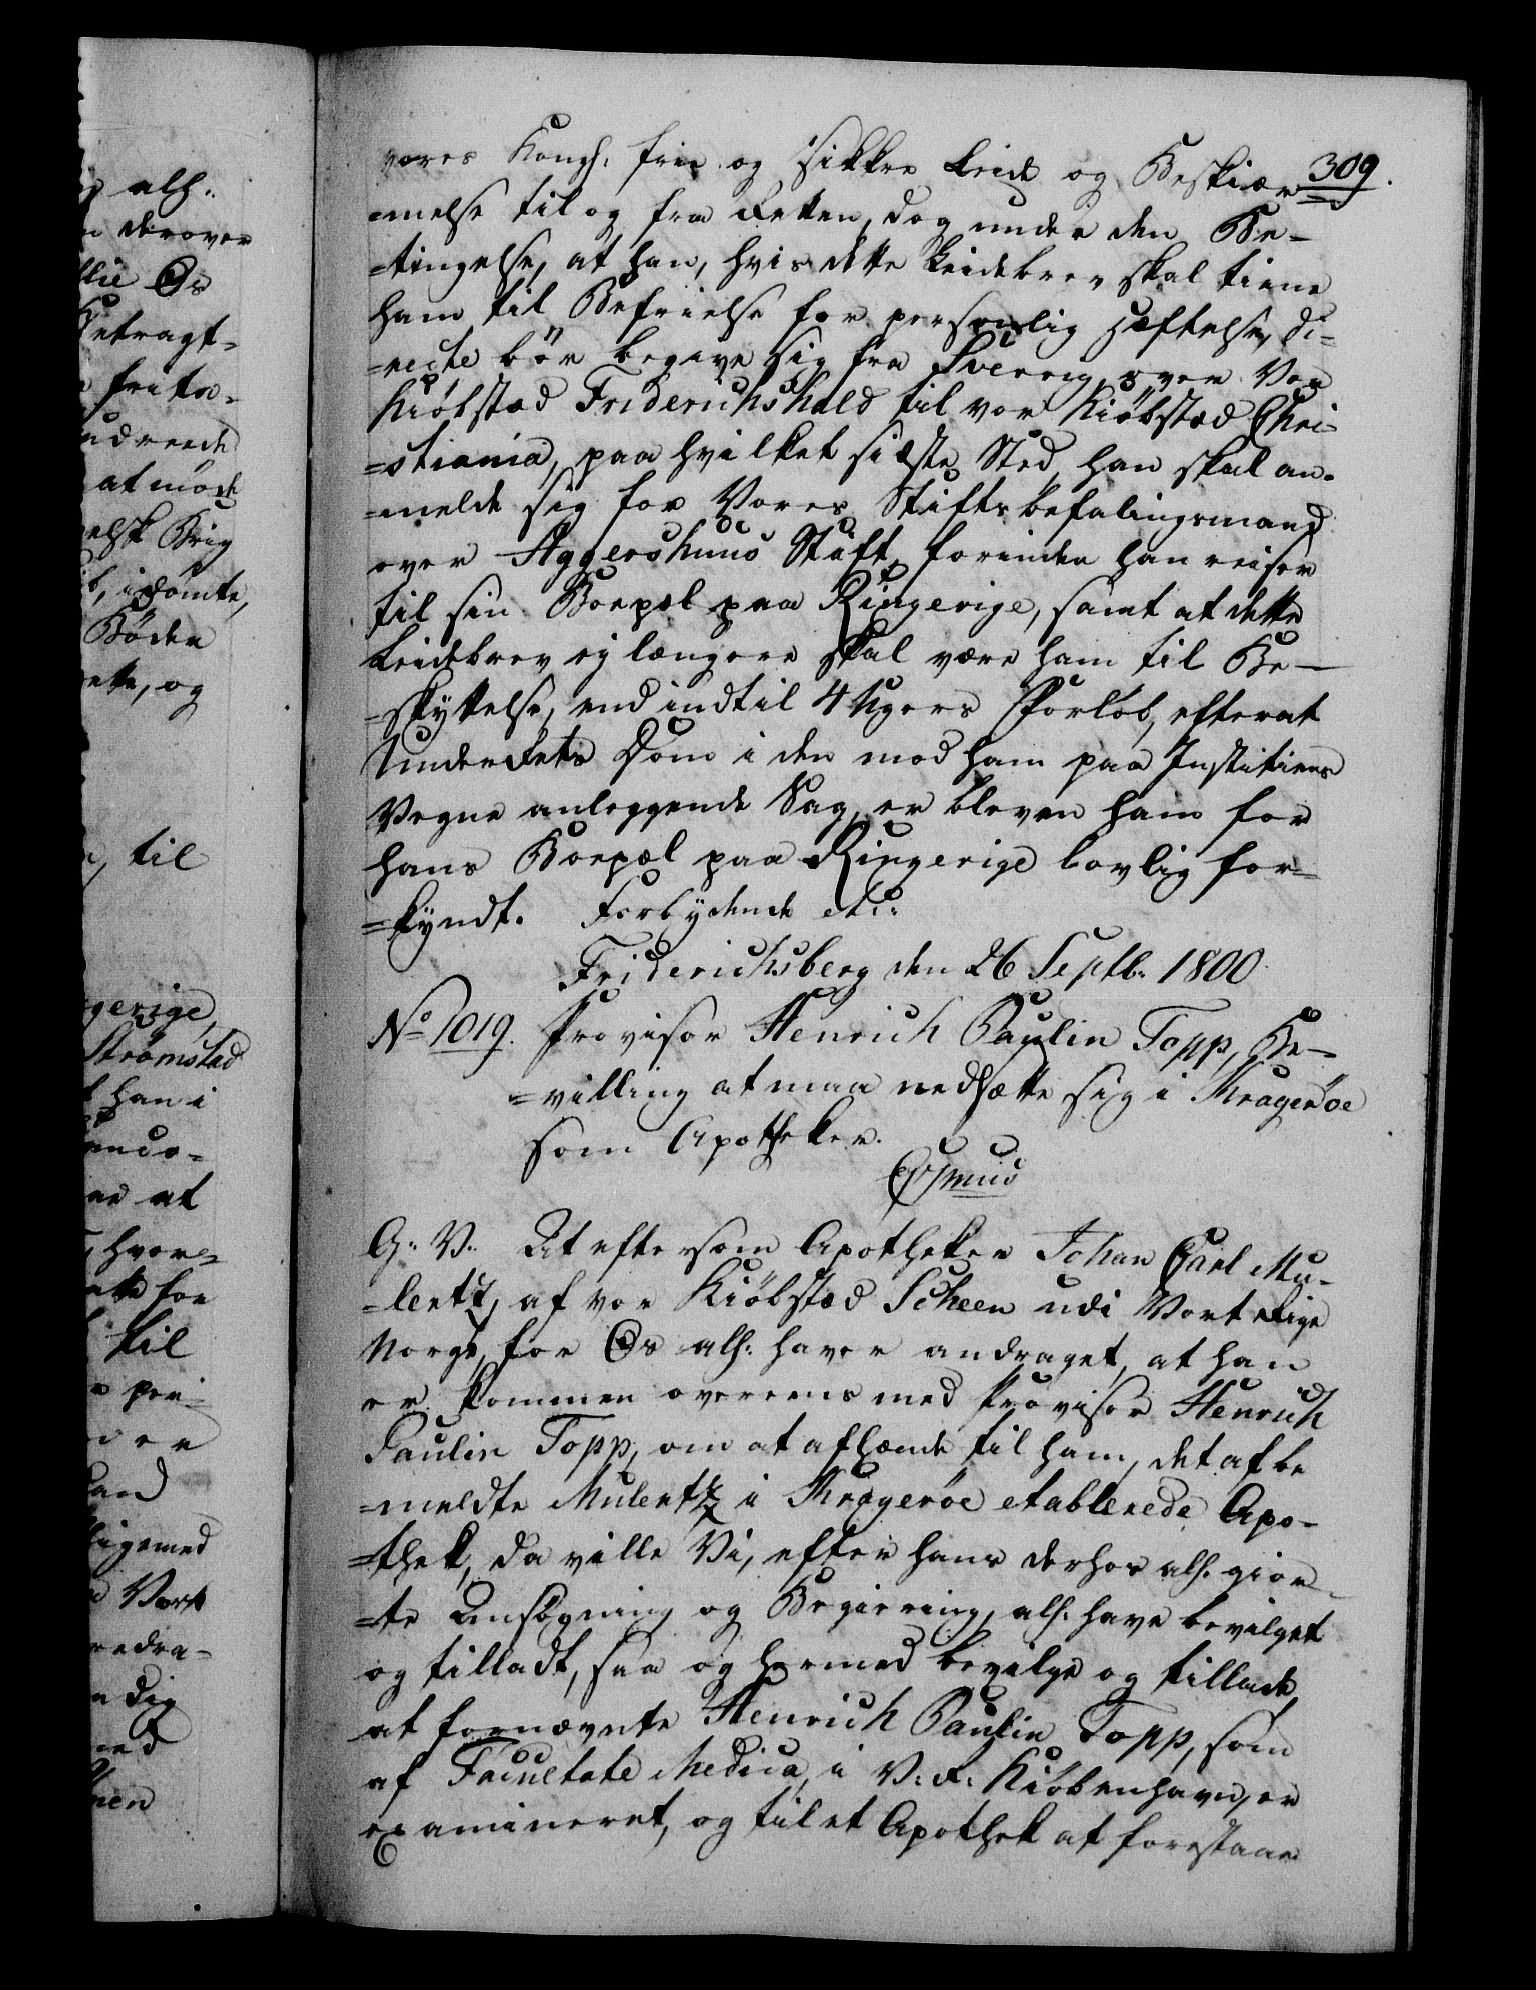 309.
vores Kongl: frie og sikkre Leide og Beskiær-
=melse til og fra Retten, dog under den Be-
=tingelse, at han, hvis dette Leidebrev skal tiene
ham til Befrielse for personlig Hæftelse, di-
=recte bör begive sig fra Sverrig over Vor
Kiöbstæd Friderichshald til vor Kiöbstæd Chri-
=stiania, paa hvilket sidste Sted, han skal an-
=melde sig for Vores Stiftsbefalingsmand
over Aggershuus Stift, forinden han reiser
til sin Boepæl paa Ringerige, samt at dette
Leidebrev ej længere skal være ham til Be-
=skyttelse, end indtil 4 Ugers Forlöb, efterat
Underrets Dom i den mod ham paa Justitiens
Vegne anlæggende Sag, er bleven ham for
hans Boepæl paa Ringerige lovlig for-
=kyndt. Forbydende etc:
Friderichsberg den 26 Septb: 1800.
No 1019. Provisor Henrich Paulin Topp, Be-
=villing at maa nedsætte sig i Krageröe
som Apotheker.
G: V: At eftersom Apotheker Johan Carl Mu-
=lertz, af vor Kiöbstæd Scheen udi Vort Rige
Norge, for Os alh: haver andraget, at han
er kommen overeens med Provisor Henrich
Paulin Topp, om at afhænde til ham, det af be
=meldte Mulertz i Krageröe etablerede Apo-
=thek, da ville Vi, efter hans derhos alh: gior-
=te Ansögning og Begiering, alh: have bevilget
og tilladt, saa og hermed bevilge og tillade,
at fornævnte Henrich Paulin Topp, som
af Facultate Medica, i V: R: Kiöbenhavn, er
examineret, og til et Apothek at forestaae